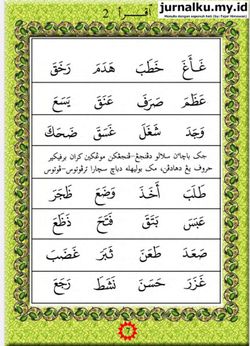 jurnalku.my.id
Menulis dengan sepenuh hati (by: Fajar Himawan)
اقرأ 2
غَأَغَ خَطَبَ هَدَمَ رَخَقَ
عَظَمَ صَرَفَ عَنَقَ يَسَعَ
وَجَدَ شَغَلَ غَسَقَ ضَحَكَ
جك باچائن سلالو دڤنجڠ-ڤنجڠكن موڠكين كران برفيكير
حروف يڠ دهادڤن، مک بوليهله دباچ سچارا ترڤوتوس-ڤوتوس
طَلَبَ أَخَذَ وَضَعَ ظَجَرَ
عَبَسَ بَثَقَ فَتَحَ ذَظَعَ
صَعَدَ طَعَنَ ثَبَرَ غَضَبَ
غَزَرَ حَسَنَ نَشَطَ رَجَعَ